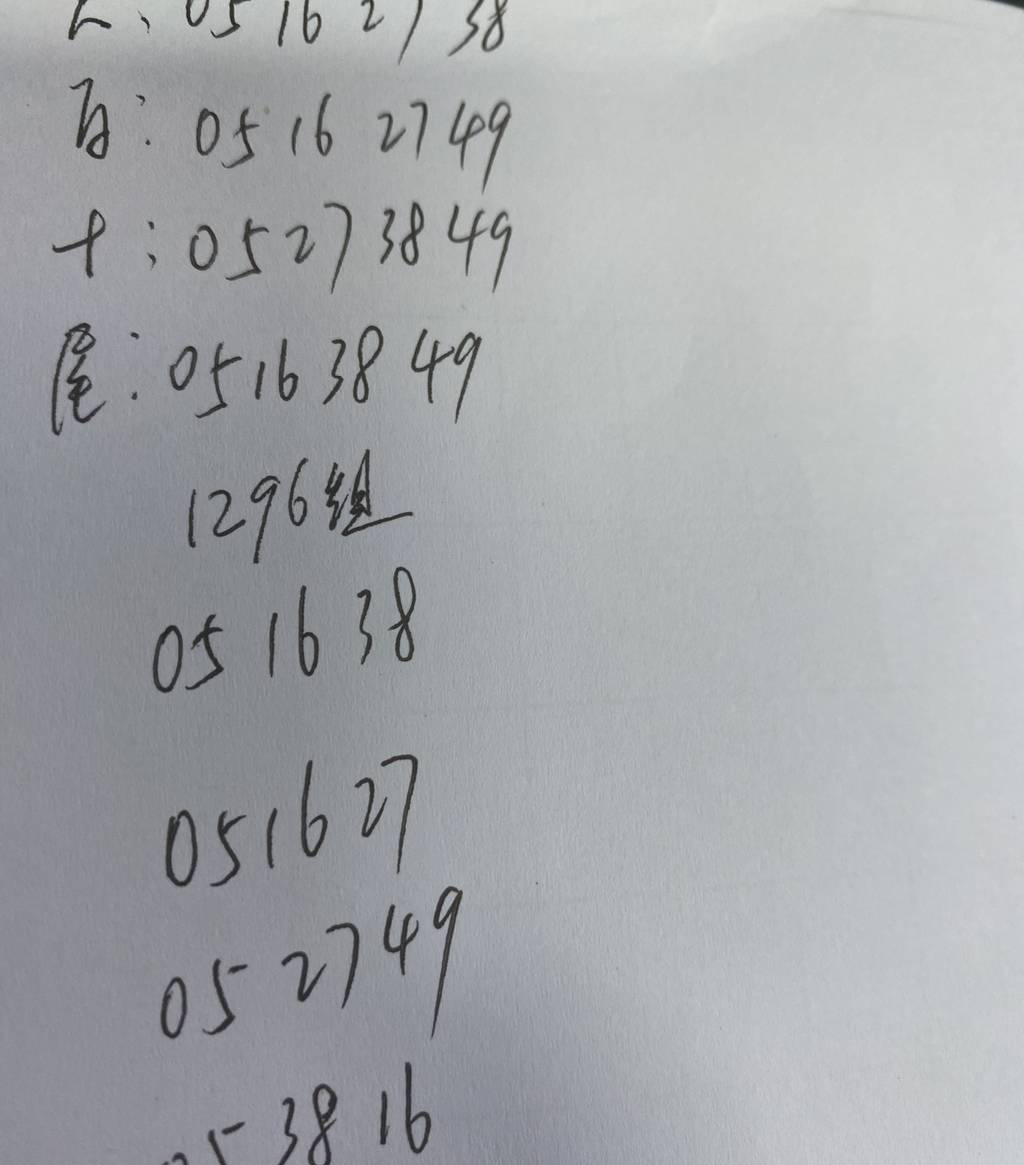 : 05 16 27 38
百: 05 16 27 49
十: 05 27 38 49
尾: 05 16 38 49
1296组
05 16 38
05 16 27
05 27 49
05 38 16